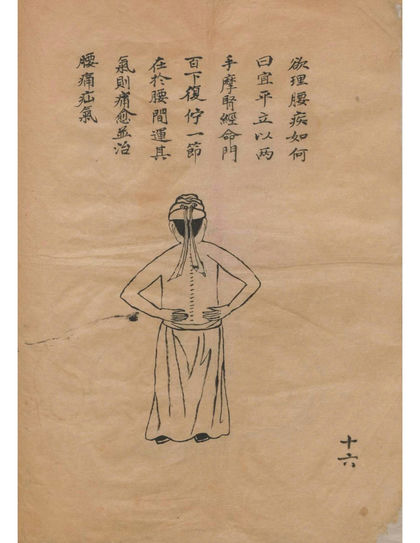 欲理腰疾如何
曰宜平立以兩
手摩腎經命門
百下復停一節
在於腰間運其
氣則痛愈並治
腰痛疝氣
十六